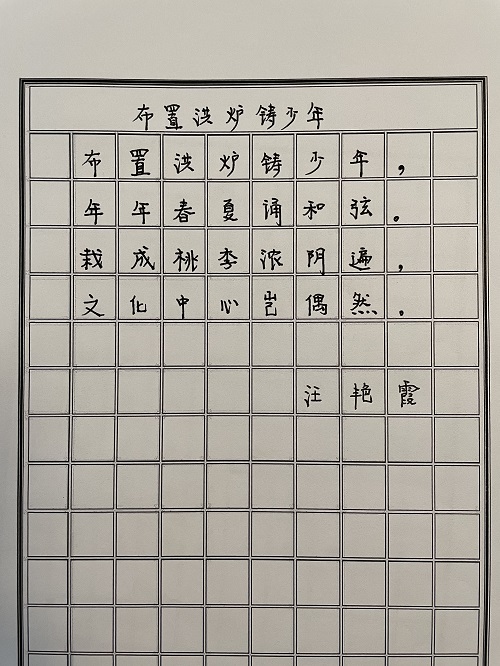 布置洪炉铸少年
布置洪炉铸少年，
年年春夏诵和弦。
栽成桃李浓阴遍，
文化中心岂偶然.
汪艳霞